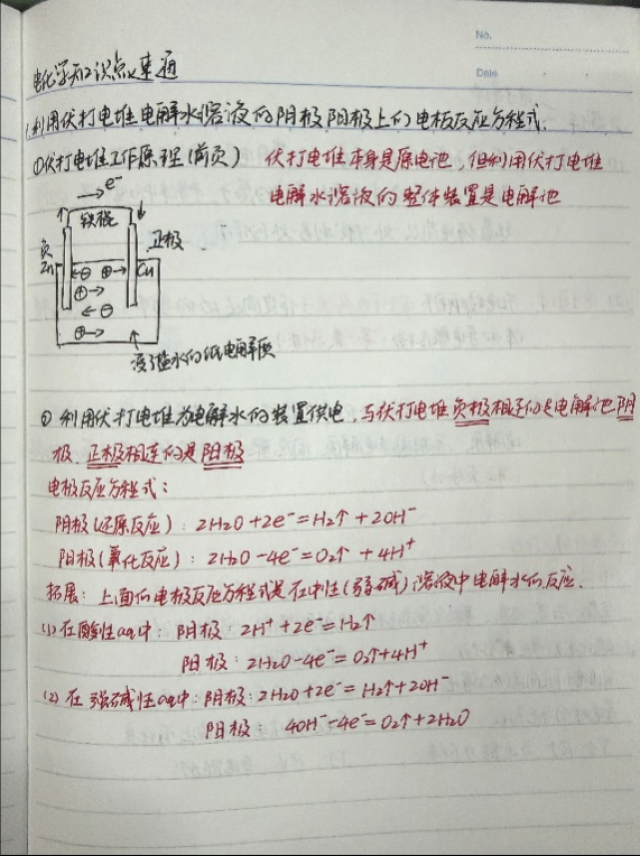 No.
Date
电化学知识点速通
1.利用伏打电堆电解水溶液的阴极阳极上的电极反应方程式.
①伏打电堆工作原理(前页) 伏打电堆本身是原电池,但利用伏打电堆
电解水溶液的整体装置是电解池
→e⁻
铁棍
负 正极
Zn ⊖ ⊕→ Cu
⊕→
←⊖
⊕→
浸了盐水的纸电解质
② 利用伏打电堆为电解水的装置供电,与伏打电堆负极相连的是电解池阴
极,正极相连的是阳极
电极反应方程式:
阴极(还原反应): 2H2O+2e⁻=H2↑+2OH⁻
阳极(氧化反应): 2H2O-4e⁻=O2↑+4H⁺
拓展:上面的电极反应方程式是在中性(弱碱)溶液中电解水的反应.
(1)在酸性aq中: 阴极: 2H⁺+2e⁻=H2↑
阳极: 2H2O-4e⁻=O2↑+4H⁺
(2)在强碱性aq中:阴极:2H2O+2e⁻=H2↑+2OH⁻
阳极: 4OH⁻-4e⁻=O2↑+2H2O